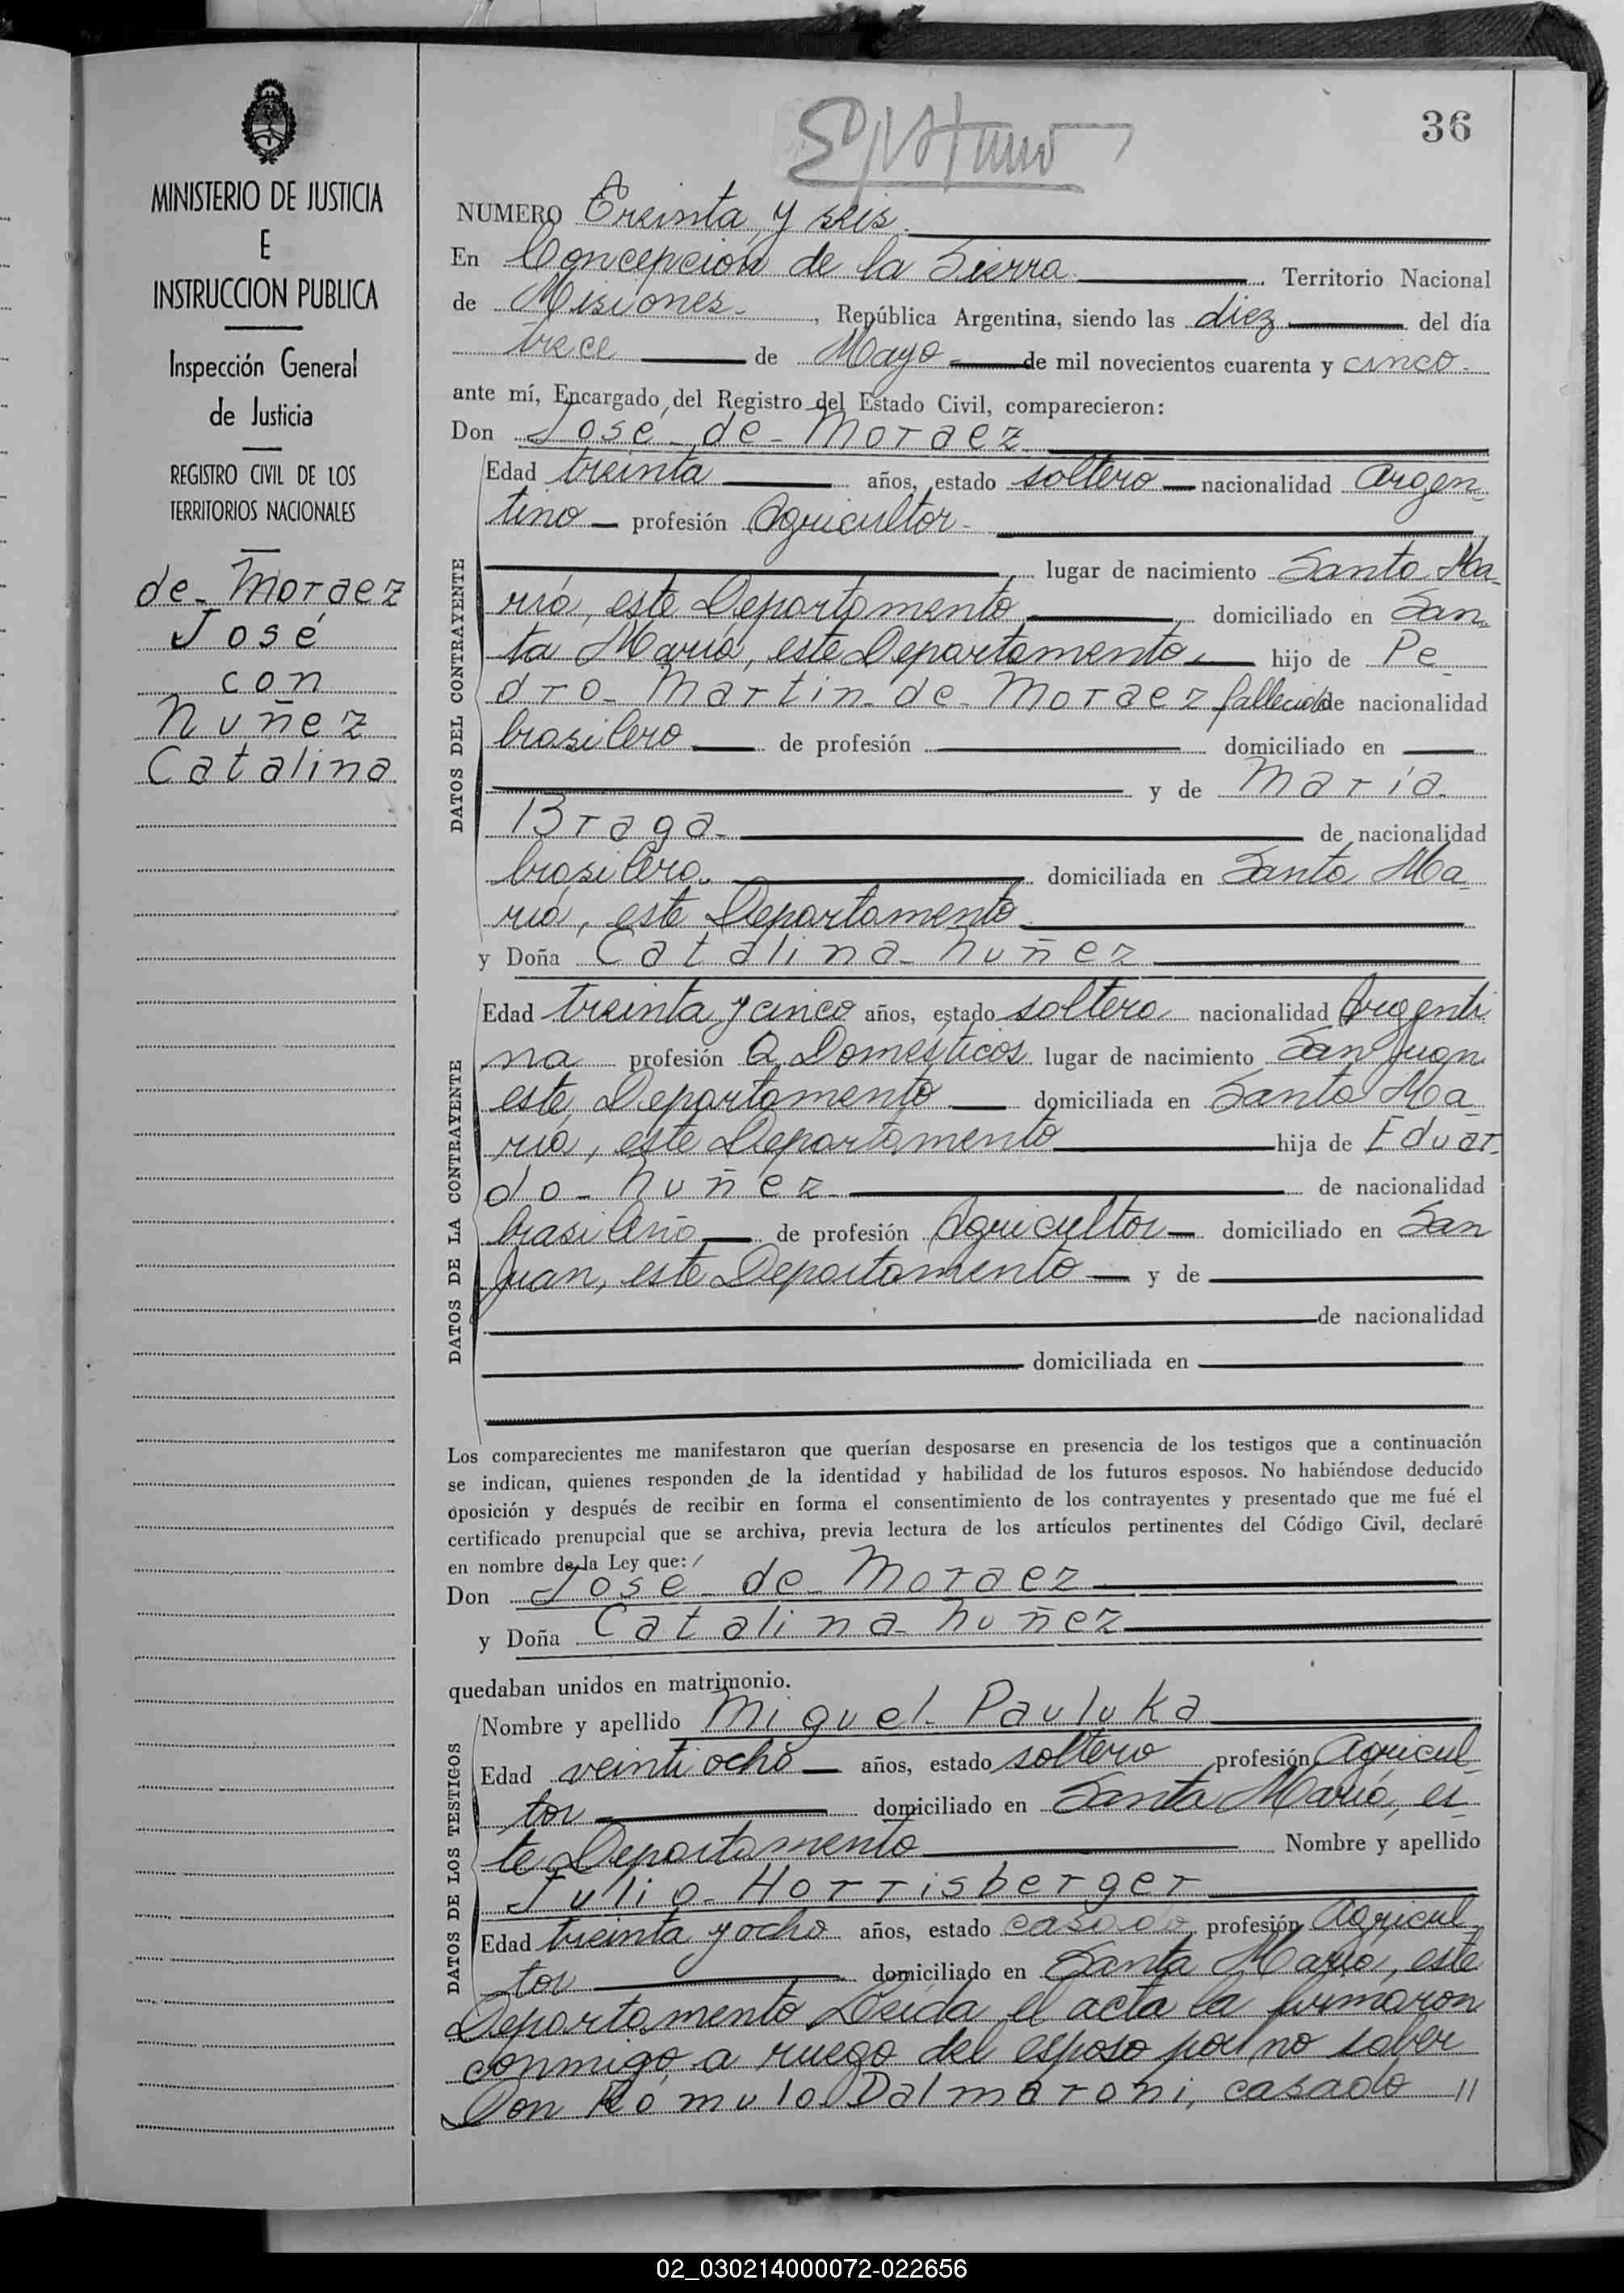 36
MINISTERIO DE JUSTICIA
E
INSTRUCCION PUBLICA
Inspección General
de Justicia
REGISTRO CIVIL DE LOS
TERRITORIOS NACIONALES
de-Moraez
José
con
Nuñez
Catalina
NUMERO Treinta y seis.
En Concepción de la Sierra. Territorio Nacional
de Misiones-, República Argentina, siendo las diez del día
trece de Mayo de mil novecientos cuarenta y cinco-
ante mí, Encargado del Registro del Estado Civil, comparecieron:
Don José-de-Moraez
DATOS DEL CONTRAYENTE
Edad treinta años, estado soltero nacionalidad Argen-
tino profesión Agricultor-
lugar de nacimiento Santa Ma-
ría, este Departamento domiciliado en San-
ta María, este Departamento, hijo de Pe-
dro-Martin-de-Moraez fallecido de nacionalidad
brasilero de profesión domiciliado en
y de María-
Braga- de nacionalidad
brasilera. domiciliada en Santa Ma-
ría, este Departamento
y Doña Catalina-Nuñez
DATOS DE LA CONTRAYENTE
Edad treinta y cinco años, estado soltera nacionalidad Argenti-
na profesión Q. Domésticos lugar de nacimiento San Juan
este Departamento domiciliada en Santa Ma-
ría, este Departamento hija de Eduar-
do-Nuñez- de nacionalidad
brasileño de profesión Agricultor domiciliado en San
Juan, este Departamento y de
de nacionalidad
domiciliada en
Los comparecientes me manifestaron que querían desposarse en presencia de los testigos que a continuación
se indican, quienes responden de la identidad y habilidad de los futuros esposos. No habiéndose deducido
oposición y después de recibir en forma el consentimiento de los contrayentes y presentado que me fué el
certificado prenupcial que se archiva, previa lectura de los artículos pertinentes del Código Civil, declaré
en nombre de la Ley que:
Don José-de-Moraez
y Doña Catalina-Nuñez
quedaban unidos en matrimonio.
DATOS DE LOS TESTIGOS
Nombre y apellido Miguel-Pauluka
Edad veintiocho años, estado soltero profesión Agricul-
tor domiciliado en Santa María, es-
te Departamento Nombre y apellido
Julio-Horrisberger
Edad treinta y ocho años, estado casado profesión Agricul-
tor domiciliado en Santa María, este
Departamento Leida el acta la firmaron
conmigo, a ruego del esposo por no saber
Don Rómulo Dalmaroni, casado //
02_030214000072-022656